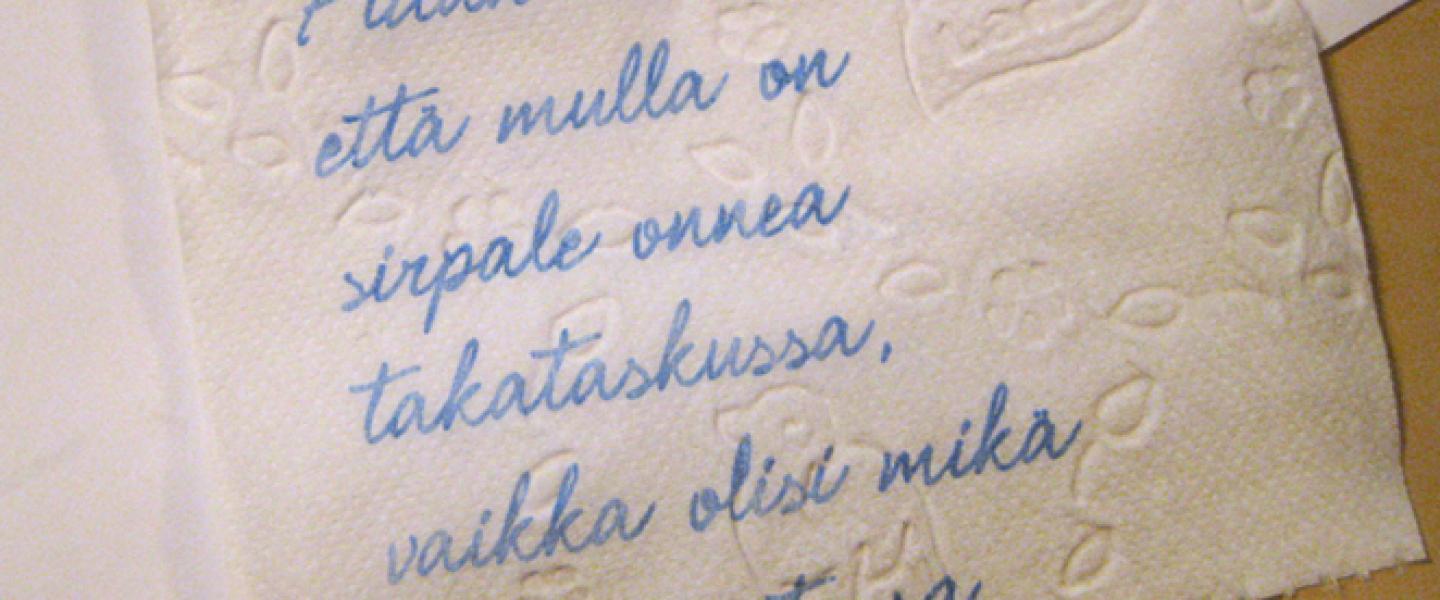 että mulla on
sirpale onnea
takataskussa,
vaikka olisi mikä